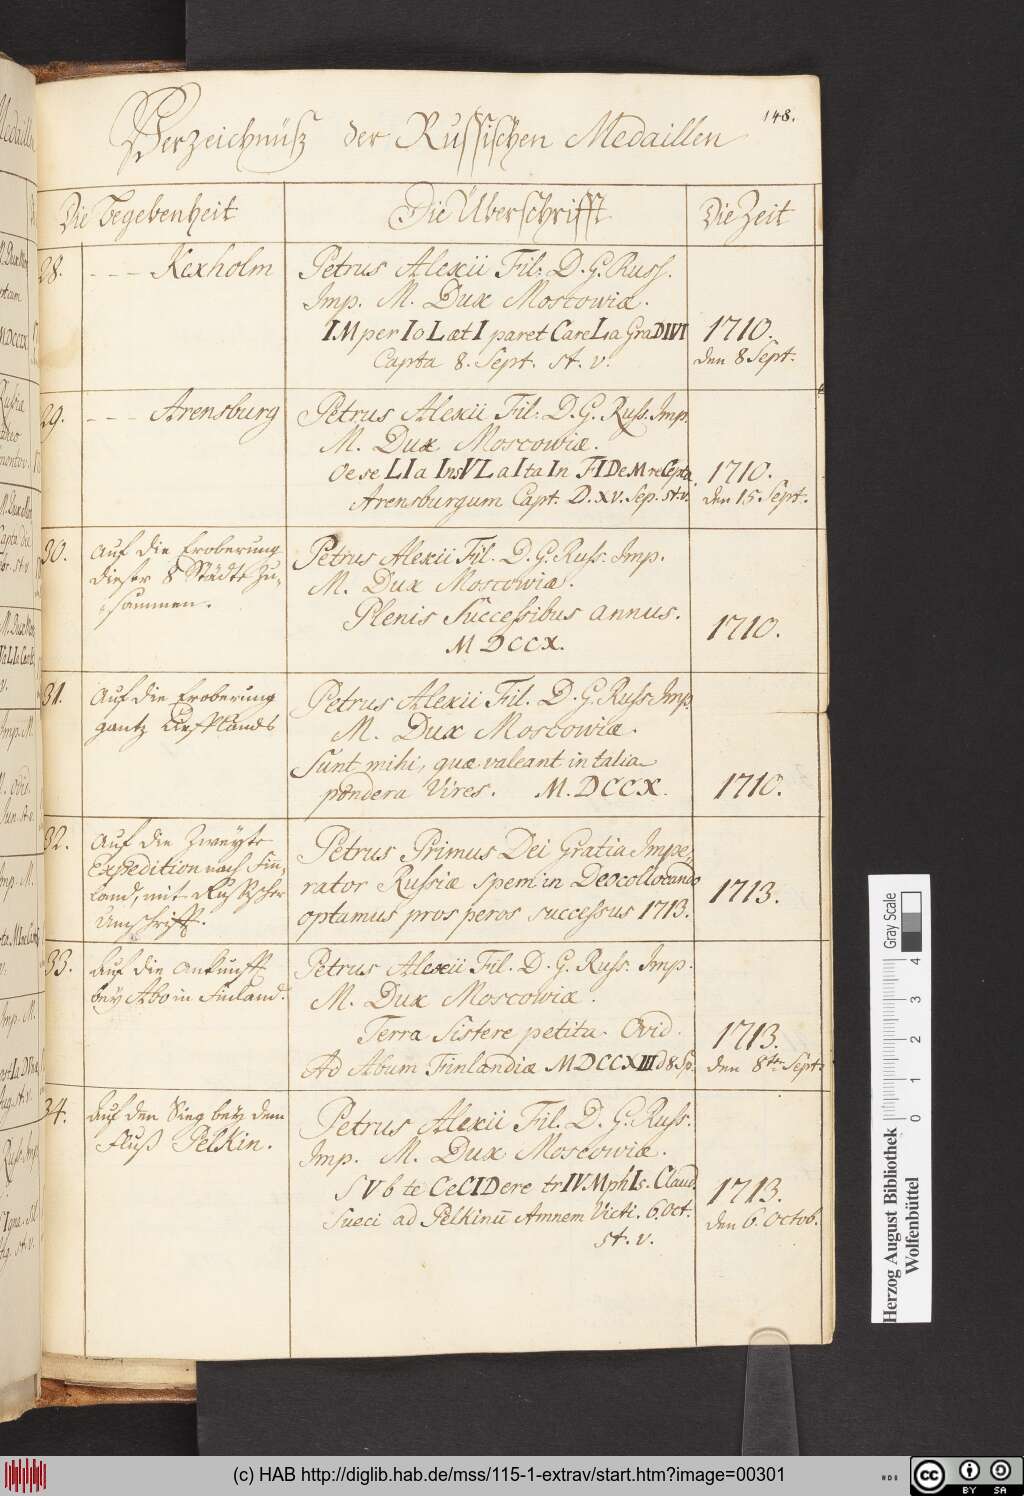 148.
Verzeichnüß der Russischen Medaillen
Die Begebenheit
Die Überschrifft
Die Zeit
28.
- - - Kexholm
Petrus Alexii Fil. D. G. Russ.
Imp. M. Dux Moscowiæ.
IMper Io LætI paret CareLa GraDIVI
Capta 8. Sept. st. v.
1710.
den 8 Sept.
29.
- - - Arensburg
Petrus Alexii Fil. D. G. Russ. Imp.
M. Dux Moscowiæ.
Oese LIa InsVLa Ita In FIDeM reCepta
Arensburgum Capt. D. XV. Sep. st. v.
1710.
den 15. Sept.
30.
Auf die Eroberung
dieser 8 Städte zu-
sammen.
Petrus Alexii Fil. D. G. Russ. Imp.
M. Dux Moscowiæ.
Plenis Successibus annus.
MDCCX.
1710.
31.
Auf die Eroberung
gantz Liefflands
Petrus Alexii Fil. D. G. Russ. Imp.
M. Dux Moscowiæ.
Sunt mihi, quæ valeant in talia
pondera Vires. M.DCCX.
1710.
32.
Auf die Zweyte
Expedition nach Fin-
land, mit Russischer
Umschrifft.
Petrus Primus Dei Gratia Impe-
rator Russiæ spem in Deo collocando
optamus prosperos successus 1713.
1713.
33.
Auf die Ankunfft
bey Abo in Finland.
Petrus Alexii Fil. D. G. Russ. Imp.
M. Dux Moscowiæ.
Terra Sistere petita. Ovid.
Ad Abum Finlandiæ MDCCXIII d 8 Sp.
1713.
den 8ten Sept.
34.
Auf den Sieg bey dem
Fluß Pelkin.
Petrus Alexii Fil. D. G. Russ.
Imp. M. Dux Moscowiæ.
SVb te CeCIDere trIVMphIs. Claud.
Sueci ad Pelkinū Amnem Victi. 6. Oct.
st. v.
1713.
den 6. Octob.
Gray Scale
0 1 2 3 4
Herzog August Bibliothek
Wolfenbüttel
(c) HAB http://diglib.hab.de/mss/115-1-extrav/start.htm?image=00301
HAB
cc BY SA